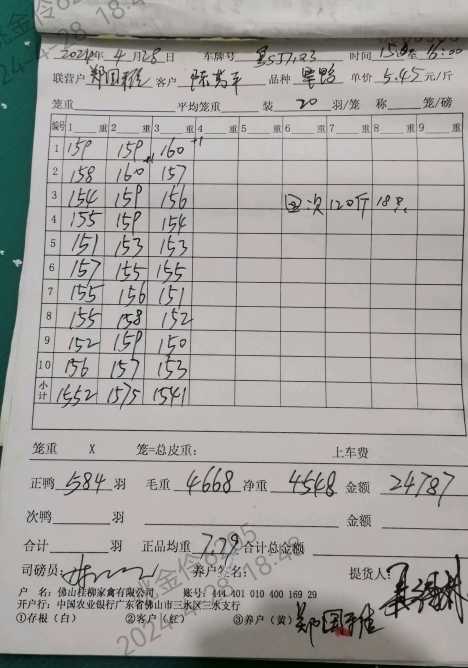 2024年4月28日 车牌号 时间15:00至16:00
联营户 郑国雅 客户 陈 平 品种 单价 5.45 元/斤
笼重 平均笼重 装 20 羽/笼 称 笼/磅
编号 1 重 2 重 3 重 4 重 5 重 6 重 7 重 8 重 9 重
1 159 159 160 +1
2 158 160 +1 157
3 154 159 156 回次120斤18只
4 155 159 154
5 151 153 153
6 157 155 155
7 155 156 151
8 155 158 152
9 152 159 150
10 156 157 153
小计 1552 1575 1541
笼重 X 笼=总皮重: 上车费
正鸭 584 羽 毛重 4668 净重 4548 金额 24787
次鸭 羽 金额
合计 羽 正品均重 7.79 合计总金额
司磅员: 养户签名: 提货人:
户 名: 佛山桂柳家禽有限公司 账号: 444 401 010 400 169 29
开户行: 中国农业银行广东省佛山市三水区三水支行
①存根(白) ②客户(红) ③养户(黄) 郑国雅